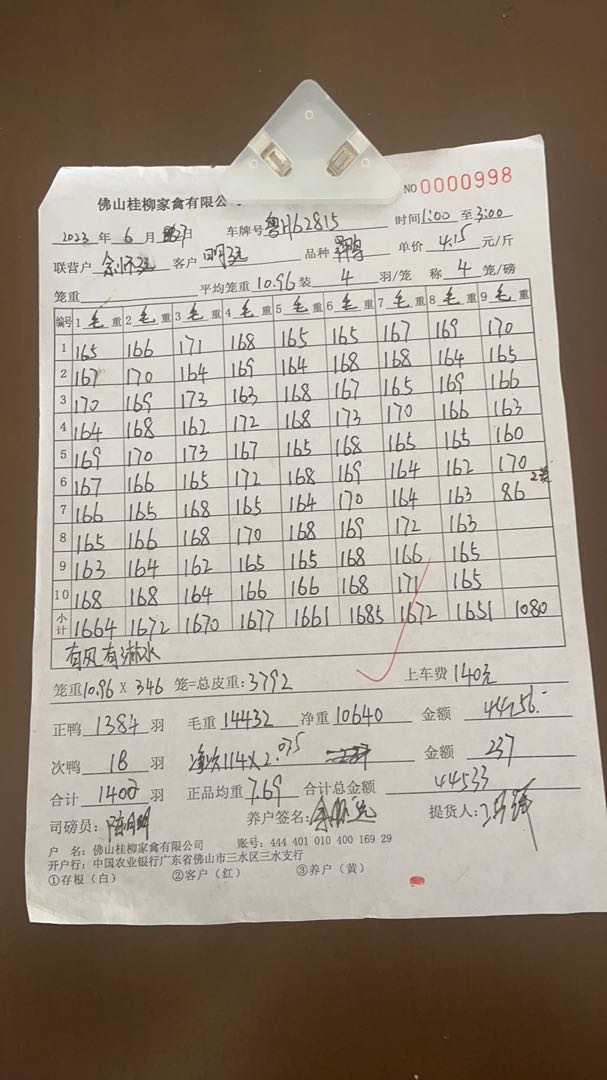 佛山桂柳家禽有限公
NO 0000998
2023 年 6 月 27日 车牌号 粤H62815 时间 1:00 至 3:00
联营户 客户 明强 品种 单价 4.15 元/斤
笼重 平均笼重 10.96 装 4 羽/笼 称 4 笼/磅
编号 1 毛 重 2 毛 重 3 毛 重 4 毛 重 5 毛 重 6 毛 重 7 毛 重 8 毛 重 9 毛 重
1 165 166 171 168 165 165 167 169 170
2 167 170 164 169 164 168 168 164 165
3 170 169 173 163 168 167 165 169 166
4 164 168 162 172 168 173 170 166 163
5 169 170 173 167 165 168 165 165 160
6 167 166 165 172 168 169 164 162 170
7 166 165 168 165 164 170 164 163 86 2笼
8 165 166 168 170 168 169 172 163
9 163 164 162 165 165 168 166 165
10 168 168 164 166 166 168 171 165
小计 1664 1672 1670 1677 1661 1685 1672 1651 1080
有风有淋水
笼重 10.96 X 346 笼=总皮重: 3792 上车费 140元
正鸭 1384 羽 毛重 14432 净重 10640 金额 44156.
次鸭 18 羽 净次114X2.075 金额 237
合计 1402 羽 正品均重 7.69 合计总金额 44533
司磅员: 陈明 养户签名: 提货人:
户 名: 佛山桂柳家禽有限公司 账号: 444 401 010 400 169 29
开户行: 中国农业银行广东省佛山市三水区三水支行
①存根(白) ②客户(红) ③养户(黄)